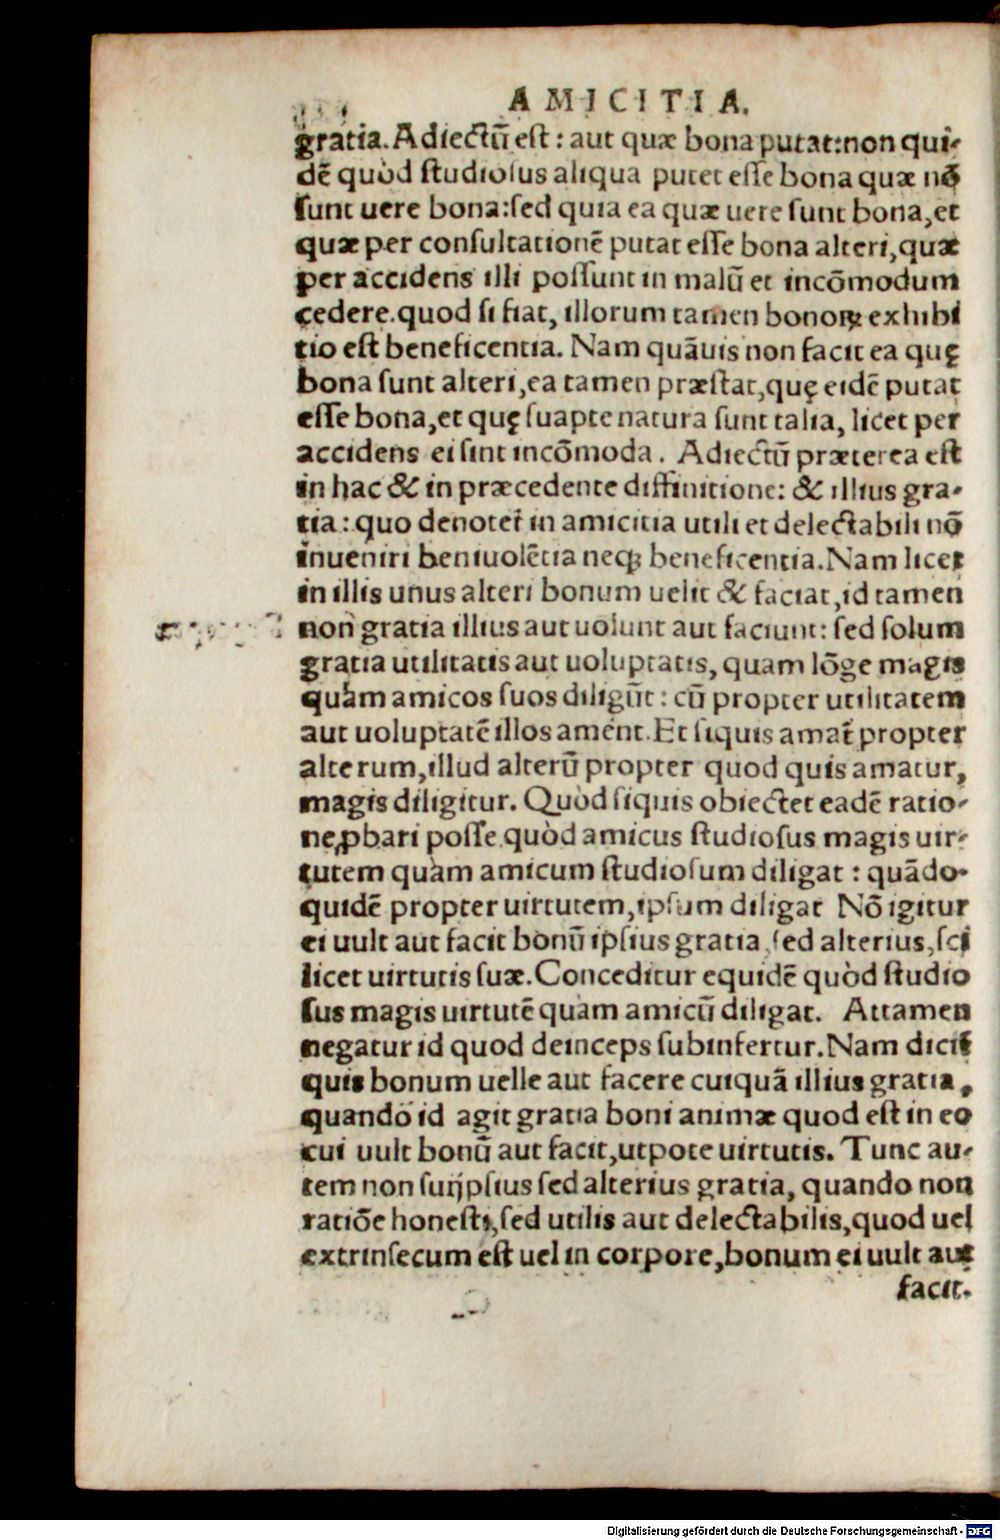 AMICITIA.
gratia. Adiectū est: aut quæ bona putat: non qui-
dē quòd studiosus aliqua putet esse bona quæ nō
sunt uere bona: sed quia ea quæ uere sunt bona, et
quæ per consultationē putat esse bona alteri, quæ
per accidens illi possunt in malū et incōmodum
cedere. quod si fiat, illorum tamen bonoꝝ exhibi
tio est beneficentia. Nam quāuis non facit ea quę
bona sunt alteri, ea tamen præstat, quę eidē putat
esse bona, et quę suapte natura sunt talia, licet per
accidens ei sint incōmoda. Adiectū præterea est
in hac & in præcedente diffinitione: & illius gra-
tia: quo denotet̄ in amicitia utili et delectabili nō
inueniri beniuolētia neqꝫ beneficentia. Nam licet
in illis unus alteri bonum uelit & faciat, id tamen
non gratia illius aut uolunt aut faciunt: sed solum
gratia utilitatis aut uoluptatis, quam lōge magis
quàm amicos suos diligūt: cū propter utilitatem
aut uoluptatē illos ament. Et siquis amat̄ propter
alterum, illud alterū propter quod quis amatur,
magis diligitur. Quòd siquis obiectet eadē ratio-
ne ꝓbari posse quòd amicus studiosus magis uir-
tutem quàm amicum studiosum diligat: quādo-
quidē propter uirtutem, ipsum diligat Nō igitur
ei uult aut facit bonū ipsius gratia, sed alterius, sci
licet uirtutis suæ. Conceditur equidē quòd studio
sus magis uirtutē quàm amicū diligat. Attamen
negatur id quod deinceps subinfertur. Nam dicit̄
quis bonum uelle aut facere cuiquā illius gratia,
quando id agit gratia boni animæ quod est in eo
cui uult bonū aut facit, utpote uirtutis. Tunc au-
tem non suijpsius sed alterius gratia, quando non
ratiōe honesti, sed utilis aut delectabilis, quod uel
extrinsecum est uel in corpore, bonum ei uult aut
facit.
Digitalisierung gefördert durch die Deutsche Forschungsgemeinschaft - DFG